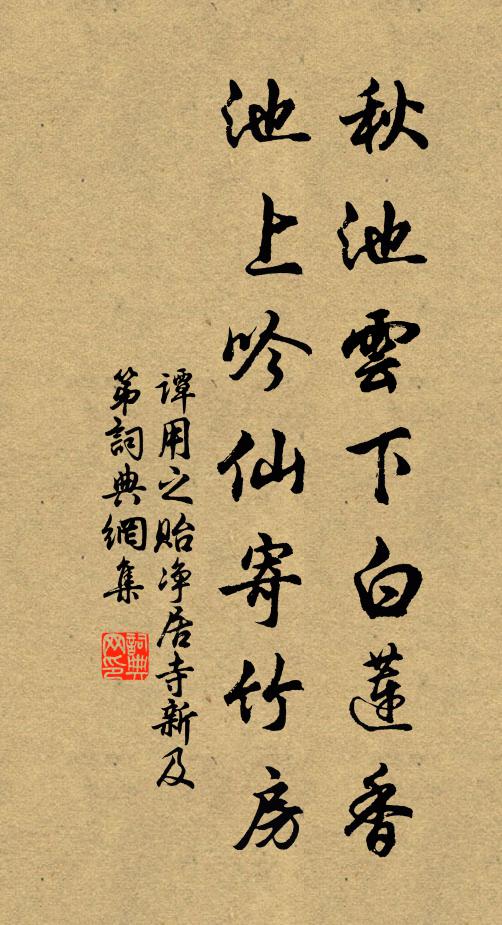 秋池雲下白蓮香
池上吟仙寄竹房
譚用之貽净居寺新及
第詞典網集
詞典
网印